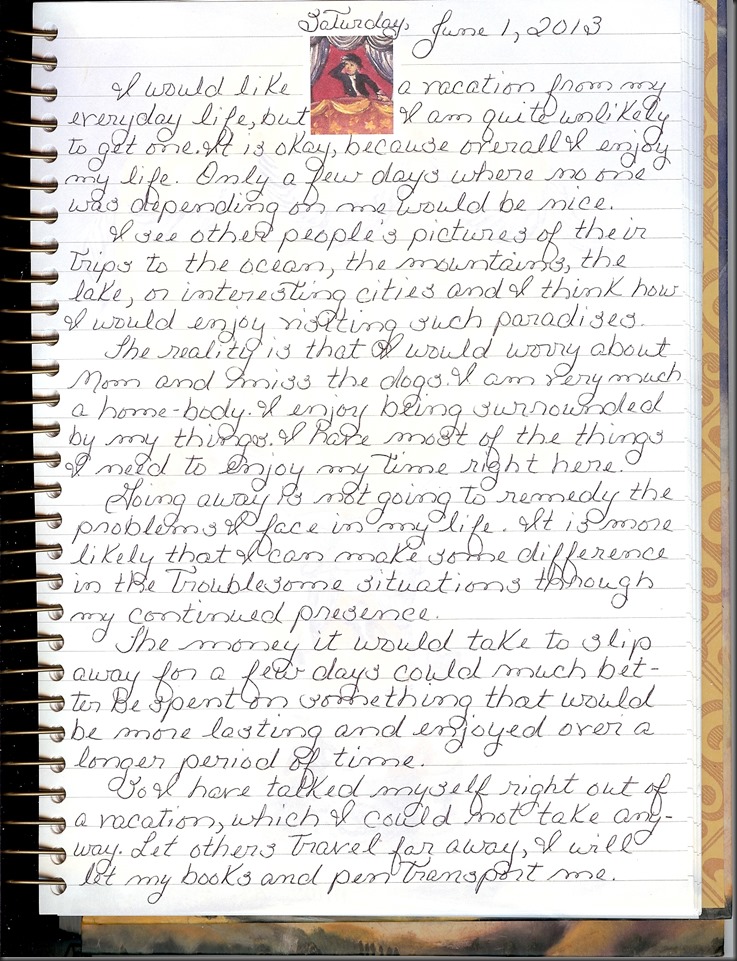 Saturday, June 1, 2013
I would like a vacation from my
everyday life, but I am quite unlikely
to get one. It is okay, because overall I enjoy
my life. Only a few days where no one
was depending on me would be nice.
I see other people's pictures of their
trips to the ocean, the mountains, the
lake, or interesting cities and I think how
I would enjoy visiting such paradises.
The reality is that I would worry about
Mom and miss the dogs. I am very much
a home-body. I enjoy being surrounded
by my things. I have most of the things
I need to enjoy my time right here.
Going away is not going to remedy the
problems I face in my life. It is more
likely that I can make some difference
in the troublesome situations through
my continued presence.
The money it would take to slip
away for a few days could much bet-
ter be spent on something that would
be more lasting and enjoyed over a
longer period of time.
So I have talked myself right out of
a vacation, which I could not take any-
way. Let others travel far away, I will
let my books and pen transport me.